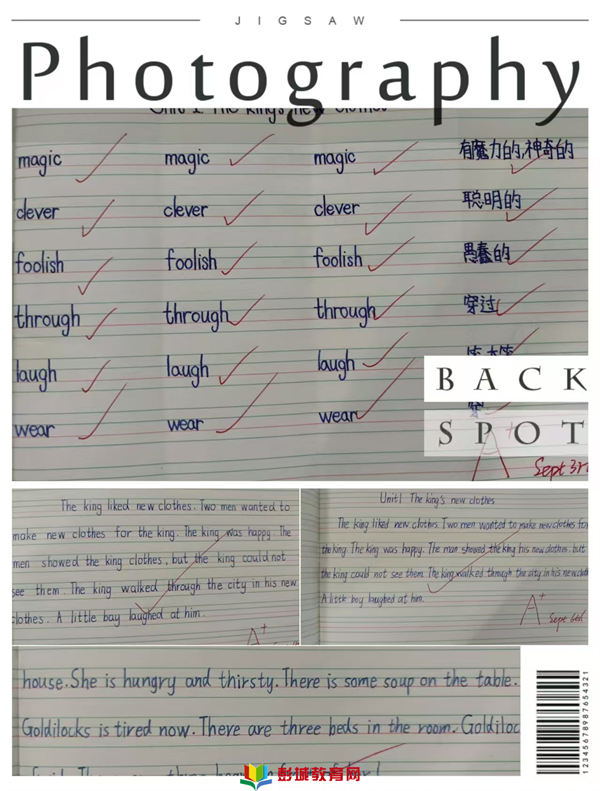 JIGSAW
Photography
Unit 1 The king's new clothes
magic magic magic 有魔力的,神奇的
clever clever clever 聪明的
foolish foolish foolish 愚蠢的
through through through 穿过
laugh laugh laugh
wear wear wear 穿
BACK
SPOT
A+
Sept 3rd
The king liked new clothes. Two men wanted to
make new clothes for the king. The king was happy. The
men showed the king clothes, but the king could not
see them. The king walked through the city in his new
clothes. A little boy laughed at him.
A+
Unit1 The king's new clothes
The king liked new clothes. Two men wanted to make new clothes for
the king. The king was happy. The man showed the king his new clothes. but
the king could not see them. The king walked through the city in his new cloth
A little boy laughed at him.
A+
Sept 6th
house. She is hungry and thirsty. There is some soup on the table.
Goldilocks is tired now. There are three beds in the room. Goldiloc
彭城教育网
12345678987654321